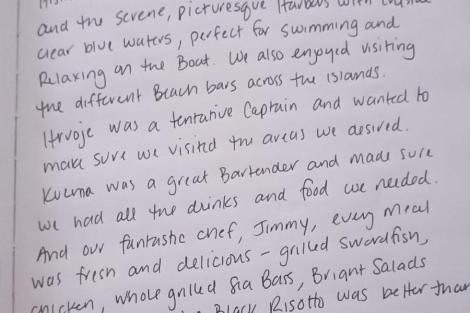 and the serene, picturesque Harbors with crystal
clear blue waters, perfect for swimming and
Relaxing on the Boat. We also enjoyed visiting
the different Beach bars across the Islands.
Hrvoje was a tentative Captain and wanted to
make sure we visited the areas we desired.
was a great Bartender and made sure
we had all the drinks and food we needed.
And our fantastic chef, Jimmy, every meal
was fresh and delicious - grilled Swordfish,
chicken, whole grilled Sea Bass, Bright Salads
Black Risotto was better than